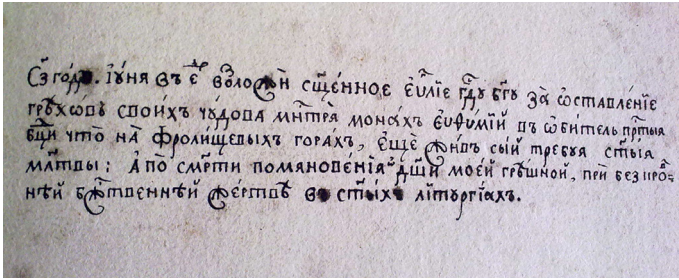 годꙋ. І҆ꙋ́нїа въ є҃ др҃ вложи́ сщ҃е́нное є҆ѵⷢ҇лїе гдⷭ҇ꙋ бг҃ꙋ за̀ ѡ҆ставле́нїе
грѣхѡ́въ свои́хъ чꙋ́дова мн҃трѧ̀ мона́хъ Є҆ѵѳѵ́мїй въ ѡ҆би́тель прⷭ҇тыѧ
бцⷣи что̀ на̀ фроли́щевыхъ гора́хъ, є҆щѐ жи́въ сы́й тре́бꙋѧ ст҃ы́ѧ
мл҃твы: А҆ по сме́рти поминове́нїѧ дш҃и мое́й грѣ́шной, при без̾кро́-
нѣй бж҃твеннѣй же́ртвѣ во ст҃ы́хъ лїтꙋргі́ахъ.